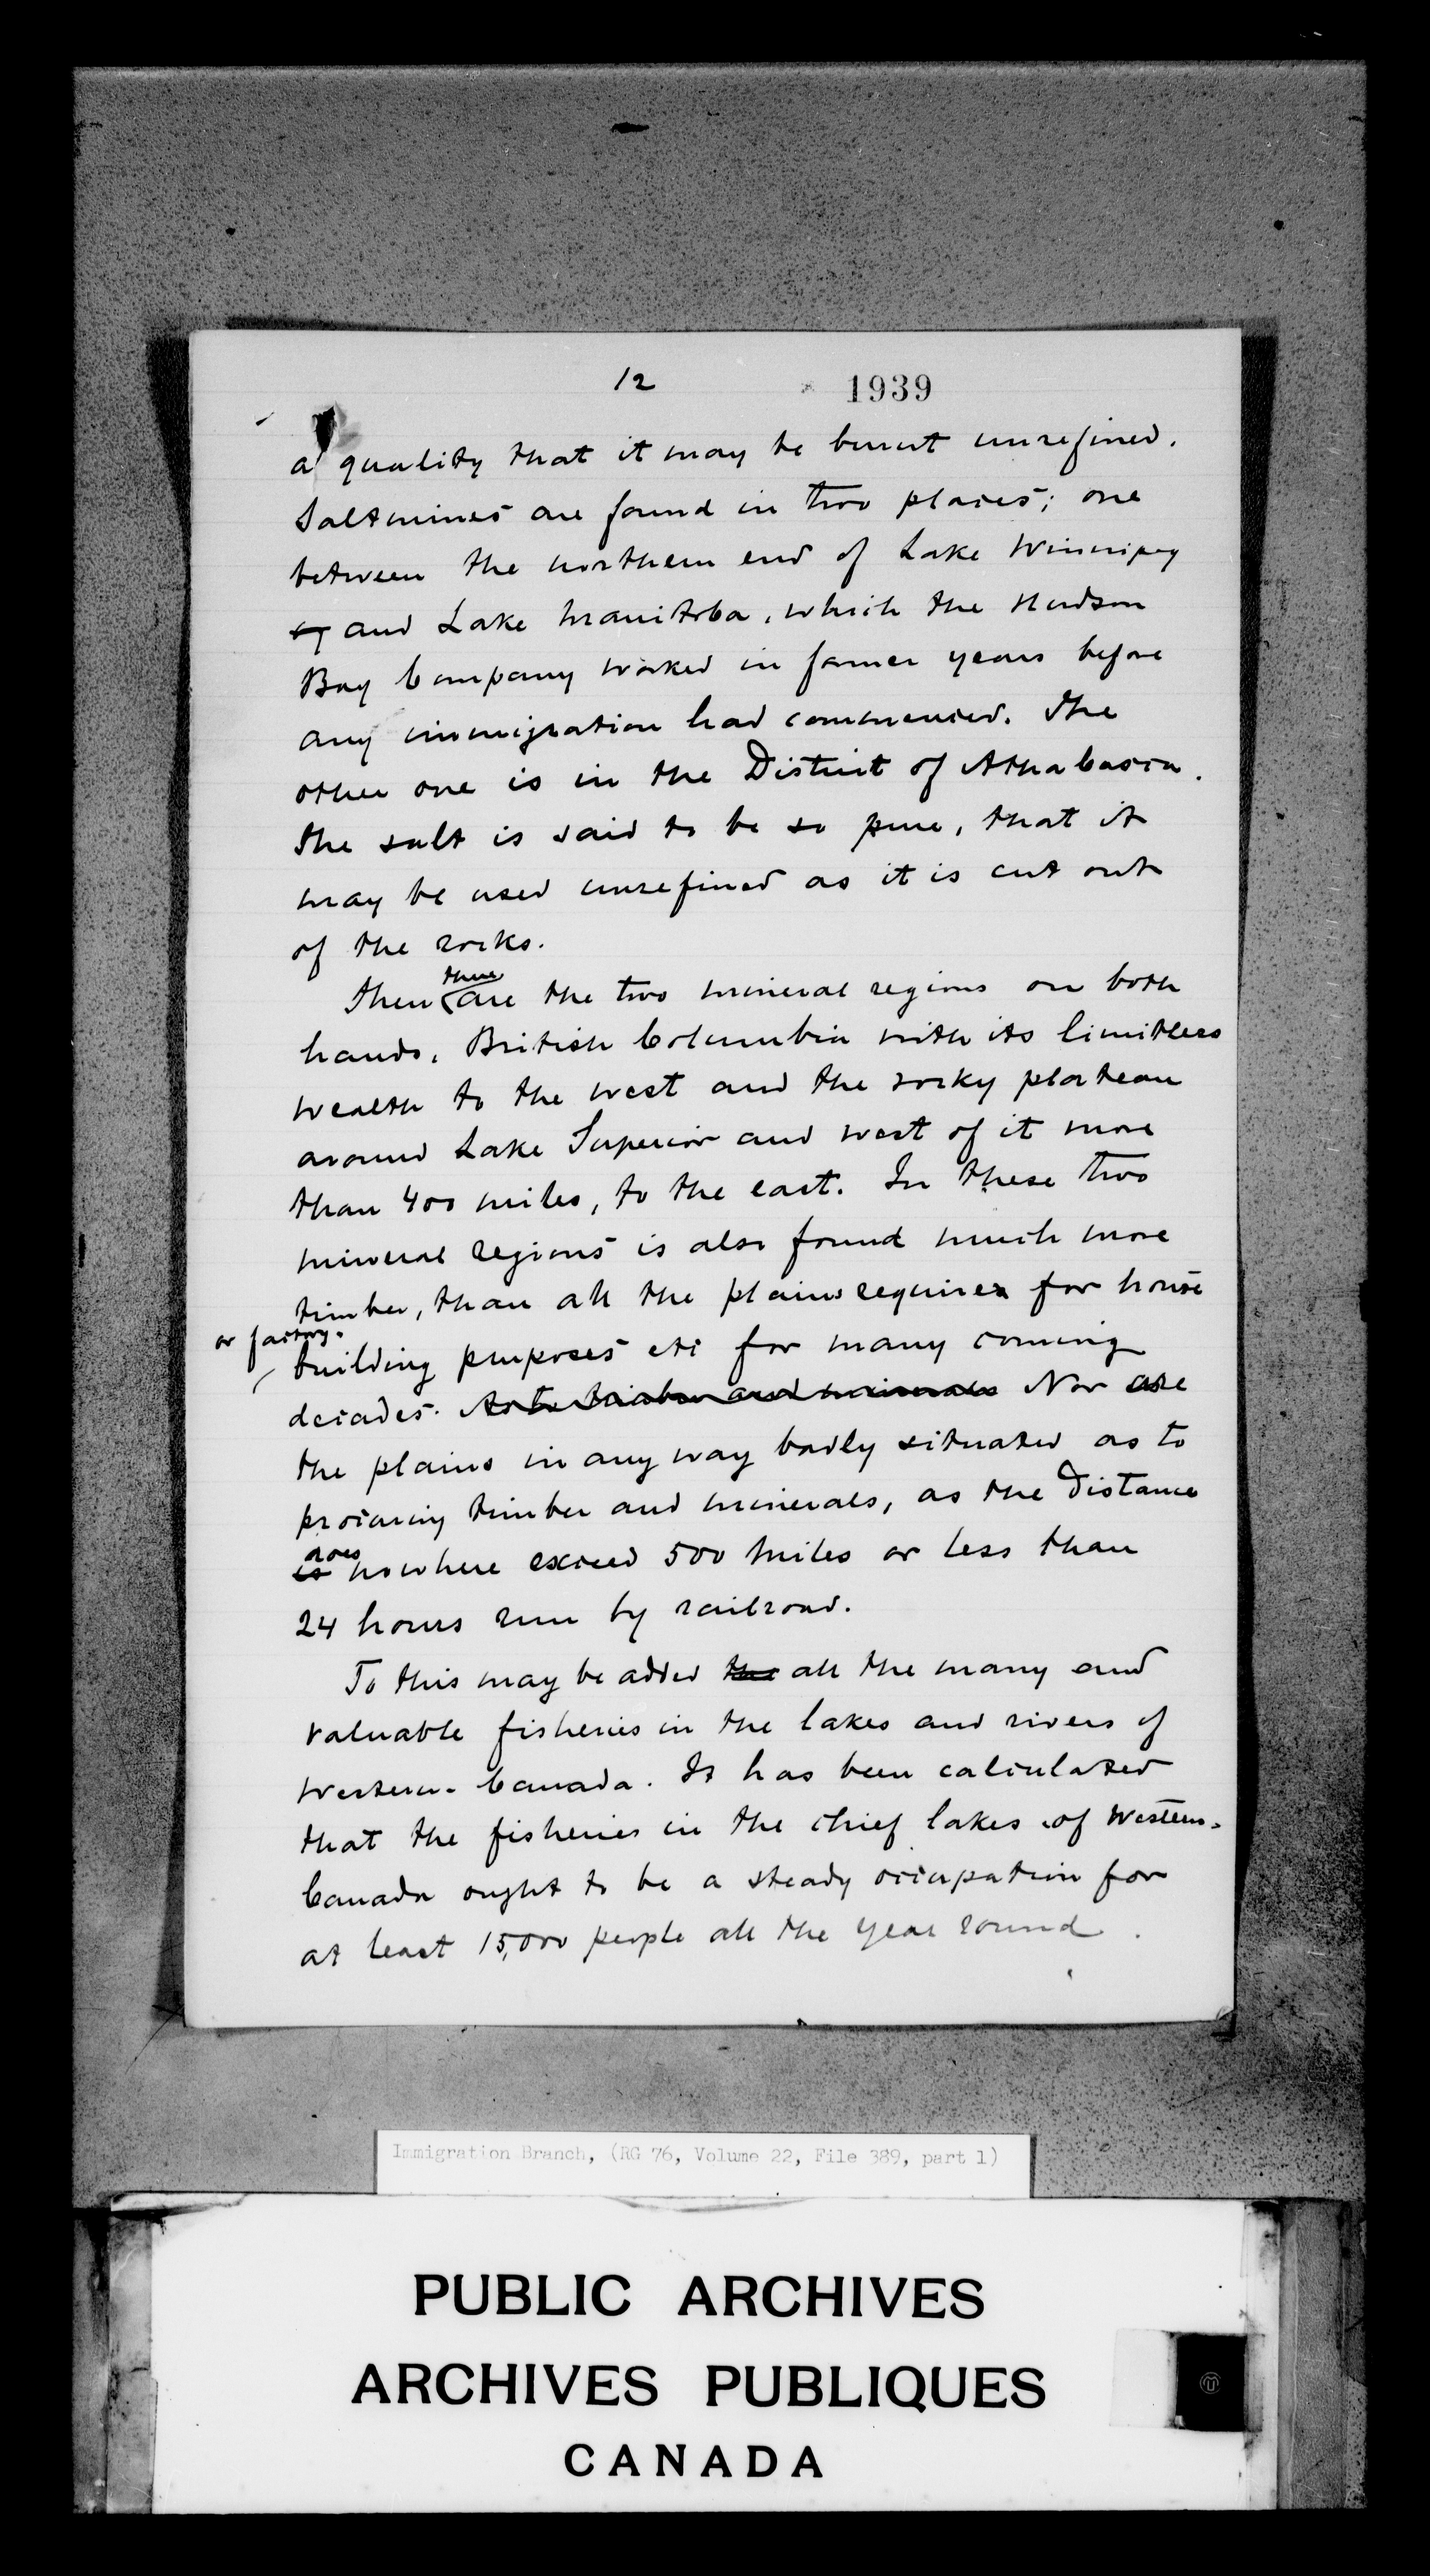 12
1939
a quality that it may be burnt unrefined.
Saltmines are found in two places; one
between the northern end of Lake Winnipeg
and Lake Manitoba, which the Hudson
Bay Company worked in former years before
any immigration had commenced. The
other one is in the District of Athabasca.
The salt is said to be so pure, that it
may be used unrefined as it is cut out
of the rocks.
there
Then are the two mineral regions on both
hands, British Columbia with its limitless
wealth to the west and the rocky plateau
around Lake Superior and west of it more
than 400 miles, to the east. In these two
mineral regions is also found much more
timber, than all the plains require for house
or factory
building purposes etc for many coming
decades. As to timber and minerals Nor are
the plains in any way badly situated as to
procuring timber and minerals, as the distance
does
is nowhere exceed 500 miles or less than
24 hours run by railroad.
To this may be added the all the many and
valuable fisheries in the lakes and rivers of
Western-Canada. It has been calculated
that the fisheries in the chief lakes of Western-
Canada ought to be a steady occupation for
at least 15,000 people all the year round.
Immigration Branch, (RG 76, Volume 22, File 389, part 1)
PUBLIC ARCHIVES
ARCHIVES PUBLIQUES
CANADA